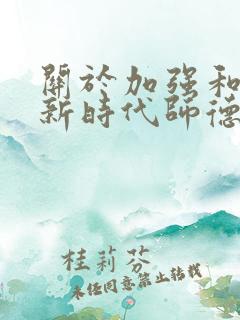 關於加強和
新時代師德
桂莉芬
未经同意禁止转载